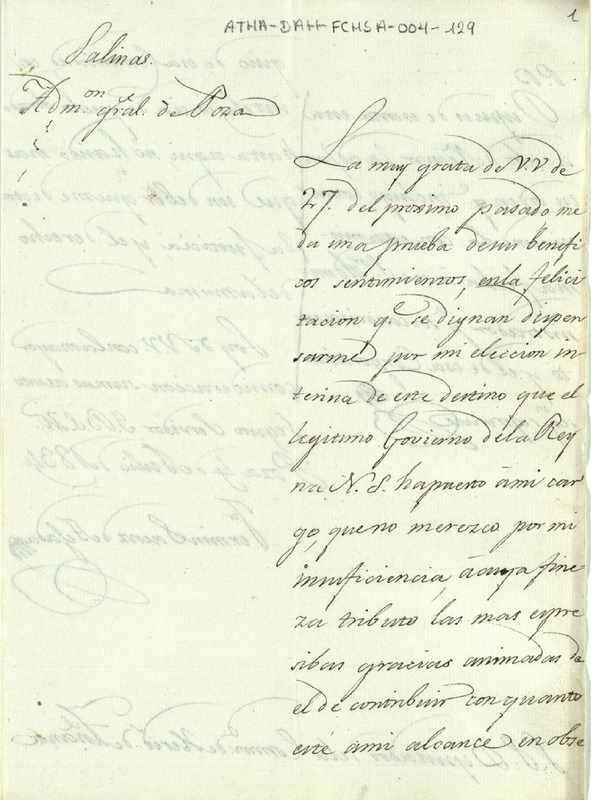 1
ATHA-DAH-FCHSA-004-129
Salinas.
Admon gral. de Poza
La muy grata de V.V. de
27. del proximo pasado me
da una prueba de sus benefi
cos sentimientos, en la felici
tacion qe. se dignan dispen
sarme por mi eleccion in
terina de este destino que el
legitimo Govierno de la Rey
na N. S. ha puesto á mi car
go, que no merezco por mi
insuficiencia, á cuya fine
za tributo las mas expre
sibas gracias animadas de
el de contribuir con quanto
esté á mi alcance en obse